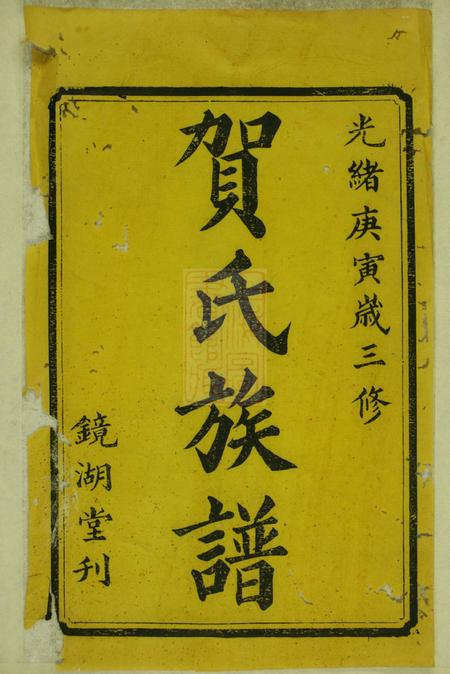 光緒庚寅歲三修
賀氏族譜
鏡湖堂刋